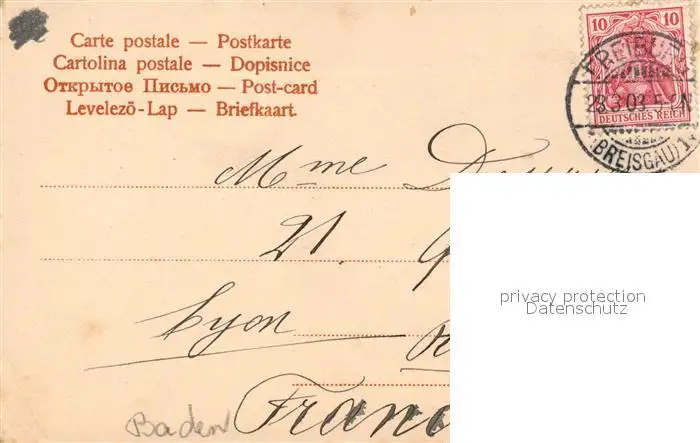 Carte postale — Postkarte
Cartolina postale — Dopisnice
Открытое Письмо — Post-card
Levelező-Lap — Briefkaart.
10 10
DEUTSCHES REICH
FREIBURG
23.3.03.5-6N
(BREISGAU) 1
Mme
21.
Lyon
Franc
Baden
privacy protection
Datenschutz